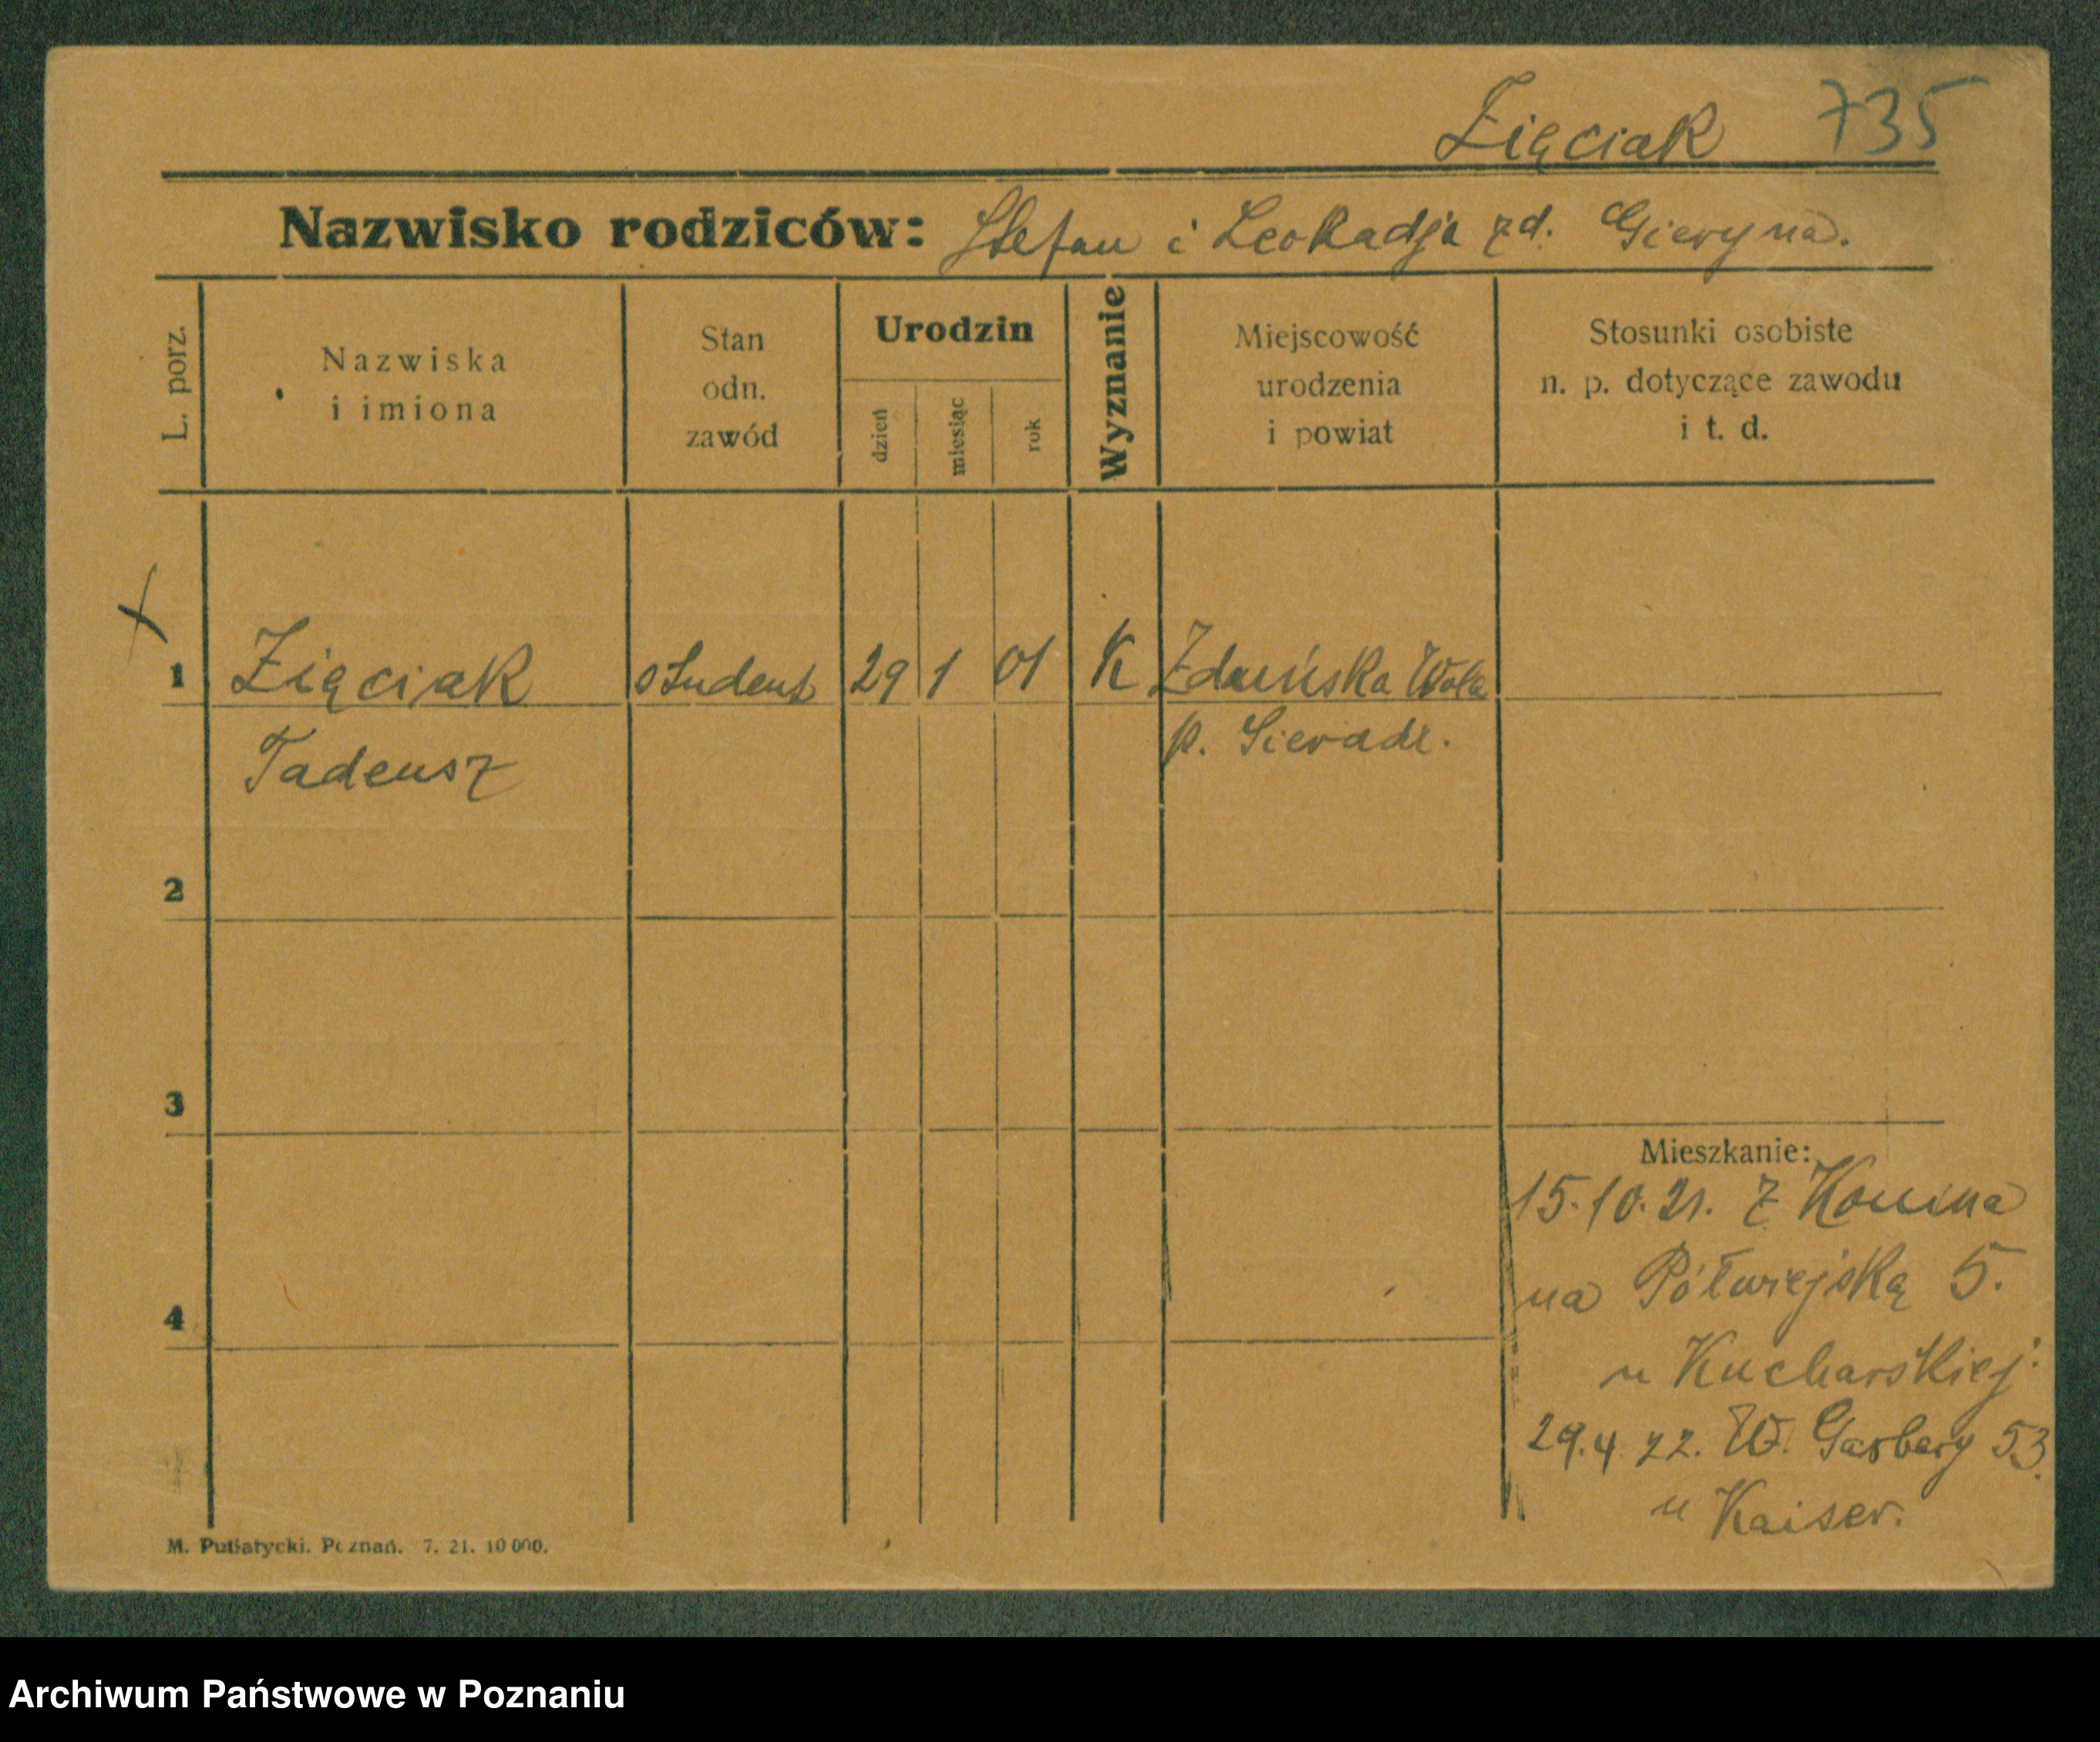 Zięciak 735
Nazwisko rodziców: Stefan i Leokadja zd. Gieryna.
L. porz.
Nazwiska
i imiona
Stan
odn.
zawód
Urodzin
dzień
miesiąc
rok
Wyznanie
Miejscowość
urodzenia
i powiat
Stosunki osobiste
n. p. dotyczące zawodu
i t. d.
1 Zięciak student 29 1 01 K Zduńska Wola
Tadeusz p. Sieradz.
2
3
4
Mieszkanie:
15.10.21. z Konina
na Półwiejską 5.
u Kucharskiej.
29.4.22. W. Garbary 53.
u Kaiser.
M. Putiatycki. Poznań. 7. 21. 10 000.
Archiwum Państwowe w Poznaniu